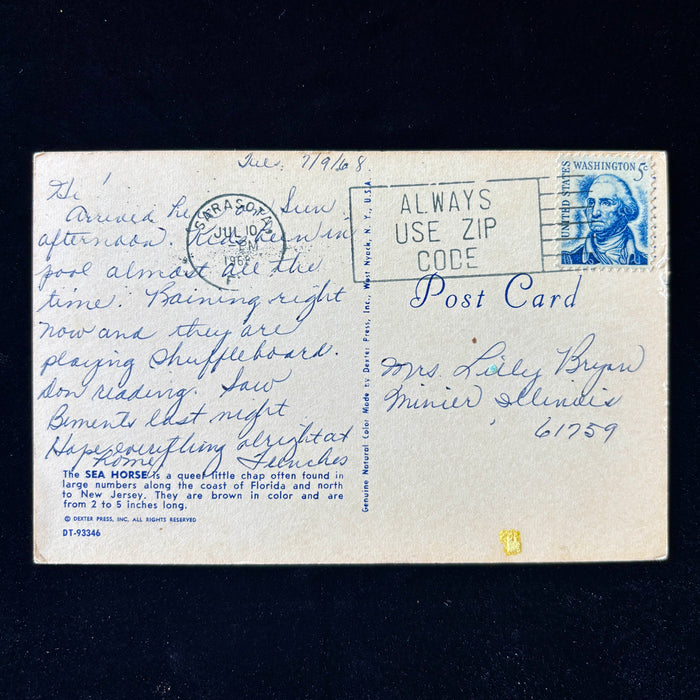 Tue. 7/9/68
Hi!
Arrived here Sun
afternoon. Kids been in
pool almost all the
time. Raining right
now and they are
playing shuffleboard.
Don reading. Saw
Bements last night
Hope everything alright at
home
The SEA HORSE is a queer little chap often found in
large numbers along the coast of Florida and north
to New Jersey. They are brown in color and are
from 2 to 5 inches long.
© DEXTER PRESS, INC. ALL RIGHTS RESERVED
DT-93346
Genuine Natural Color Made by Dexter Press, Inc., West Nyack, N. Y., U.S.A.
SARASOTA
JUL 10
PM
1968
ALWAYS
USE ZIP
CODE
UNITED STATES
WASHINGTON 5c
Post Card
Mrs. Lilly Bryan
Minier Illinois
61759